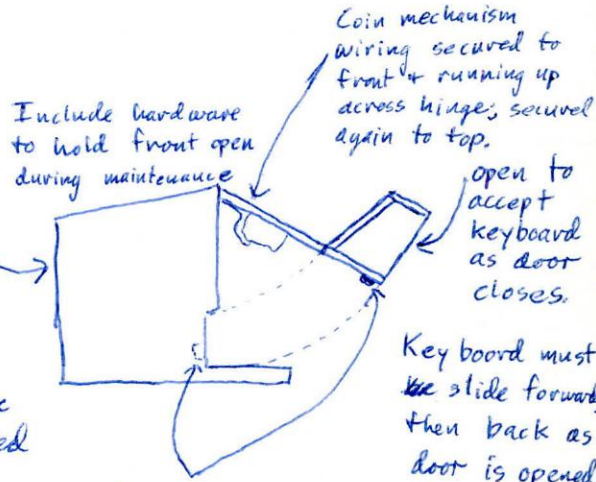 Coin mechanism
wiring secured to
front + running up
across hinge; secured
again to top.
Include hardware
to hold front open
during maintenance
open to
accept
keyboard
as door
closes.
Key board must
slide forward,
then back as
door is opened
ed